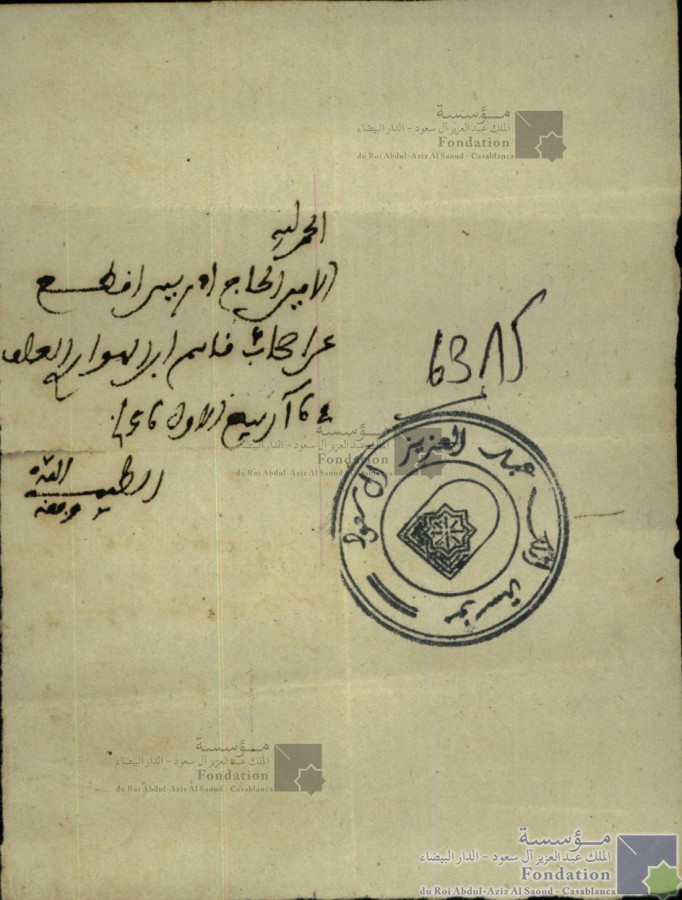 مؤسسة
الملك عبد العزيز آل سعود - الدار البيضاء
Fondation
du Roi Abdul-Aziz Al Saoud - Casablanca
الحمد لله
الامين الحاج ادريس
قاسم
ربيع الاول
6385
مؤسسة
الملك عبد العزيز آل سعود - الدار البيضاء
Fondation
du Roi Abdul-Aziz Al Saoud - Casablanca
مؤسسة الملك عبد العزيز ال سعود
الطيب
الله
وفقه
مؤسسة
الملك عبد العزيز آل سعود - الدار البيضاء
Fondation
du Roi Abdul-Aziz Al Saoud - Casablanca
مؤسسة
الملك عبد العزيز آل سعود - الدار البيضاء
Fondation
du Roi Abdul-Aziz Al Saoud - Casablanca